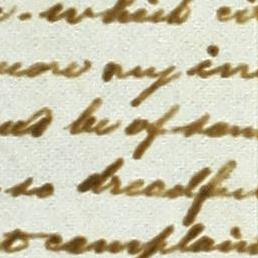 which
my in
be of som
so dreadfu
complain